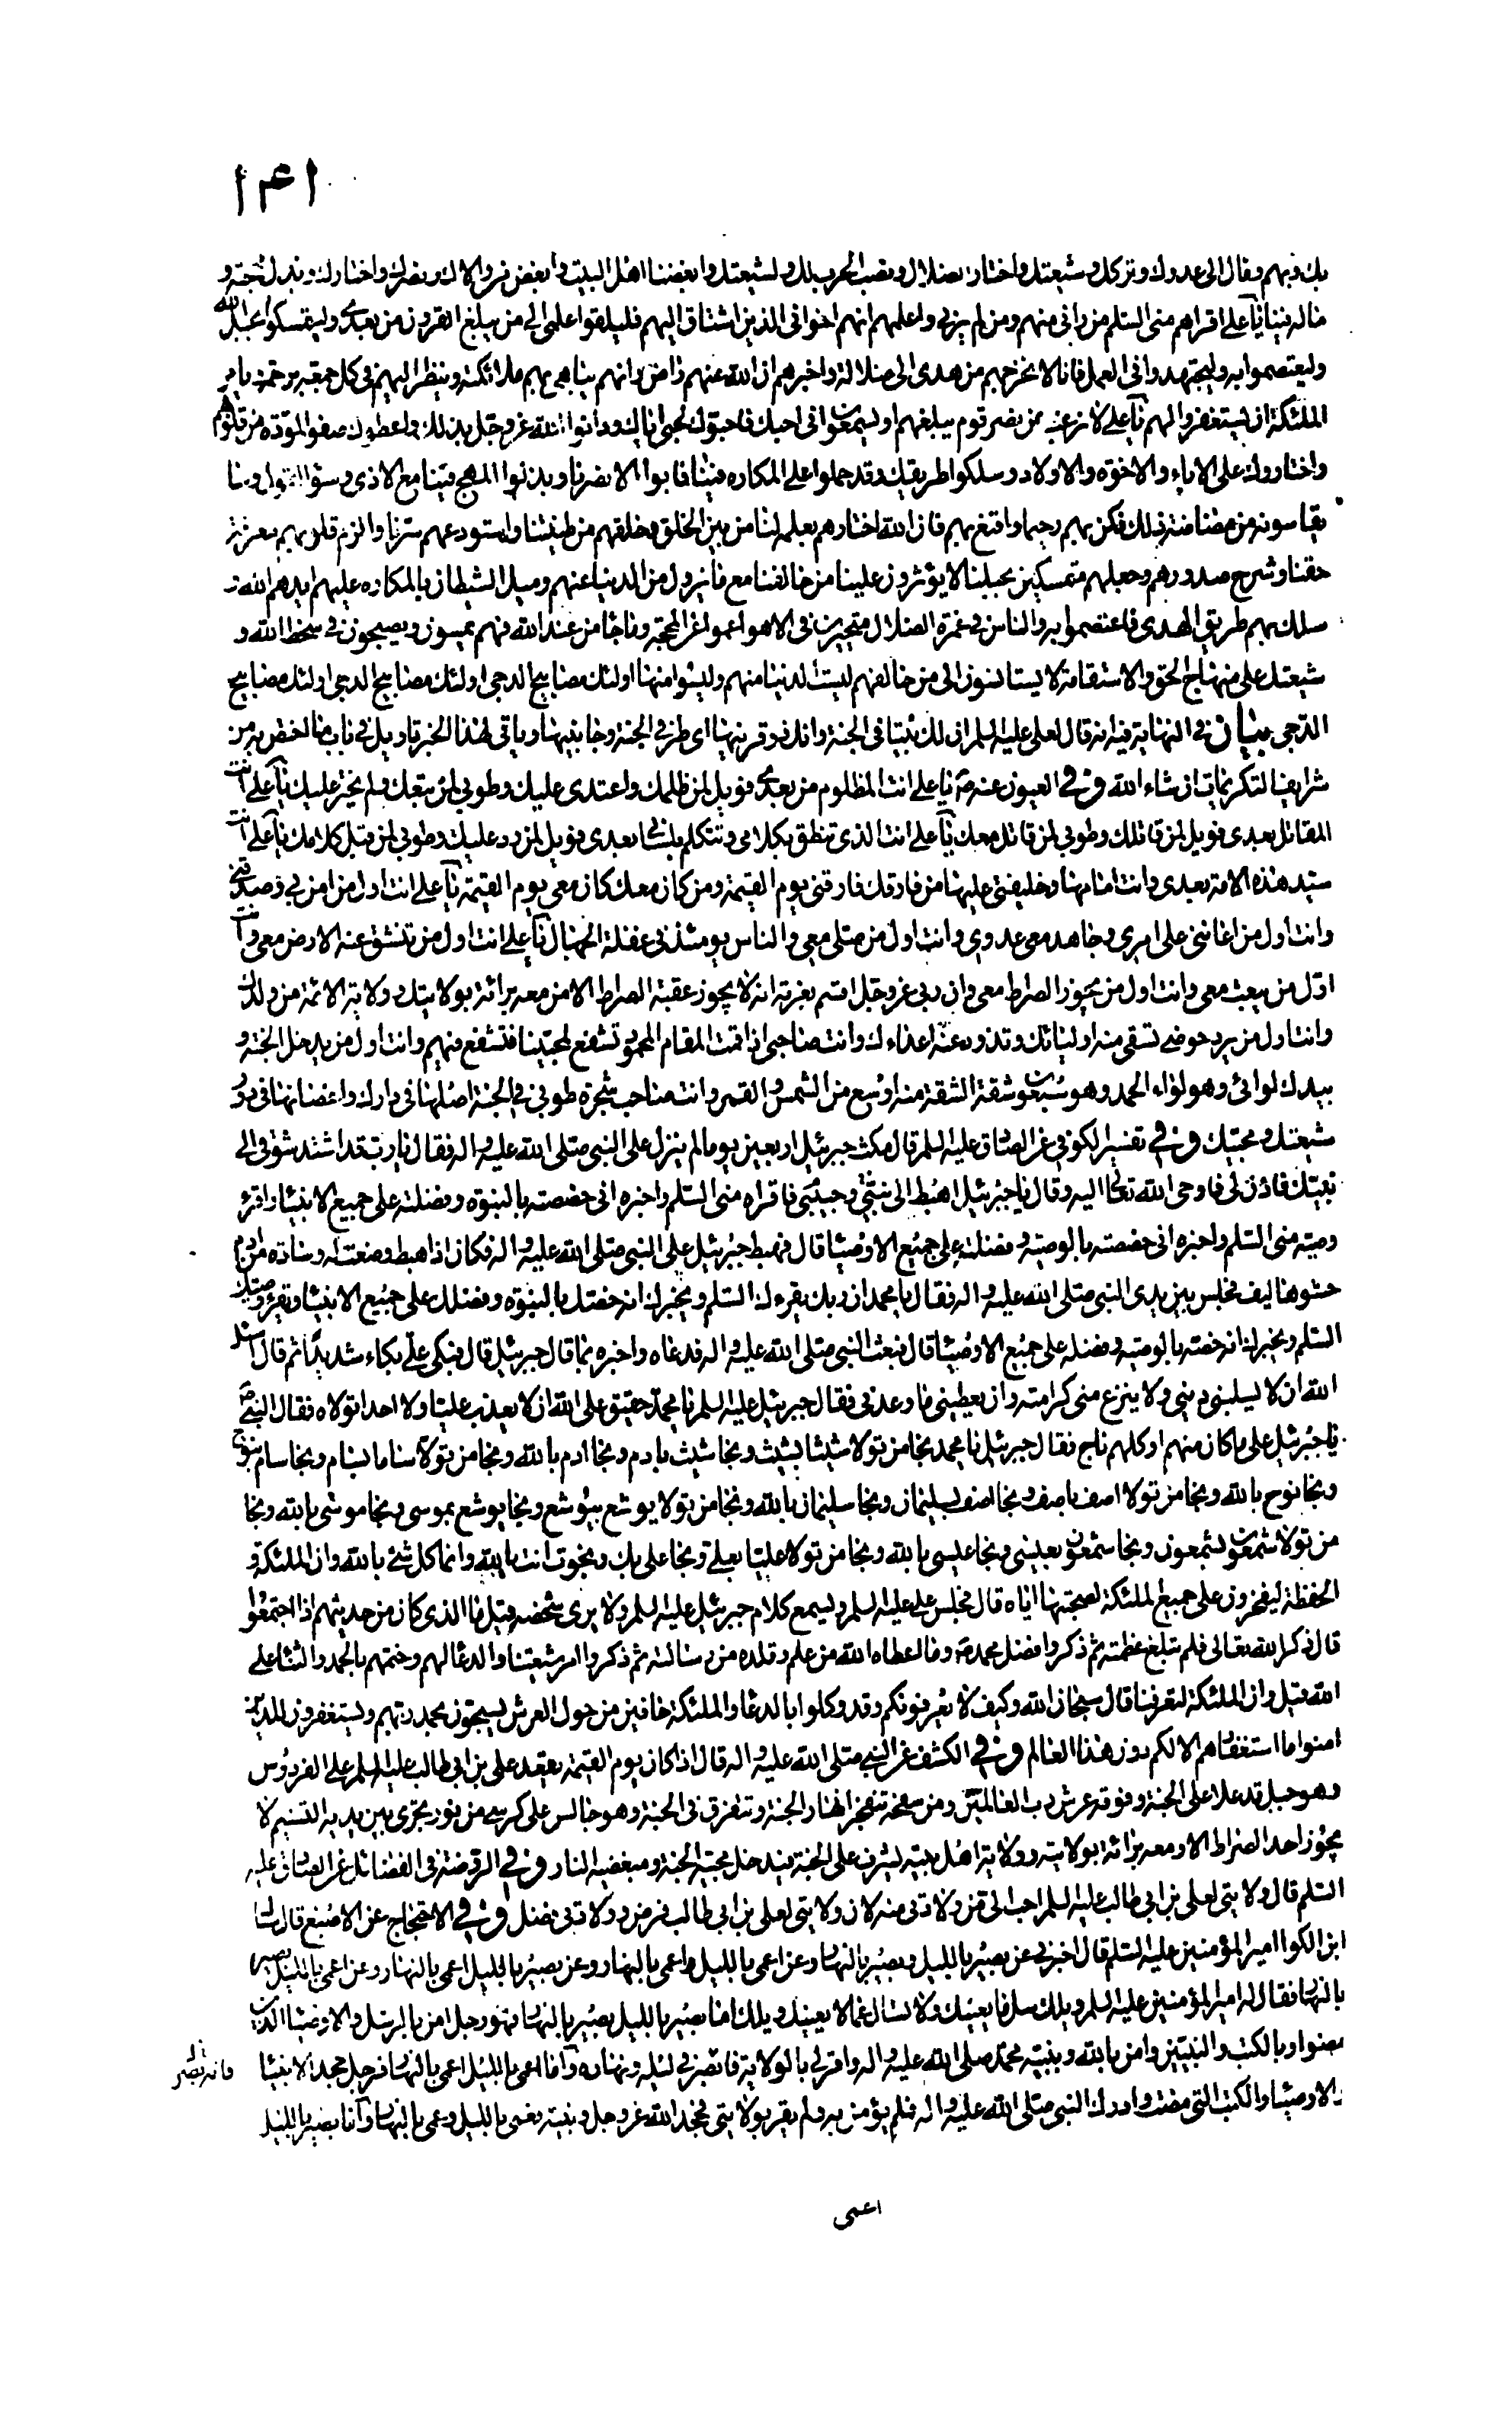 ١٤١
بك وبهم ومال الى عدوك وتركك وشيعتك واختار الضلال ونصب الحرب لك ولشيعتك وابغضنا اهل البيت وابغض من والاك ونصرك واختارك وبذل مهجته و
ماله فينا يا علي اقراهم مني السلم من راني منهم ومن لم يرني واعلمهم انهم اخواني الذين اشتاق اليهم فليلقوا علمي الى من يبلغ القرون من بعدي وليتمسكوا بحبل الله
وليعتصموا به وليجتهدوا في العمل فانا لا نخرجهم من هدى الى ضلالة واخبرهم ان الله عنهم راض وانهم يباهي بهم ملائكته وينظر اليهم في كل جمعة برحمته ويامر
الملئكة ان يستغفروا لهم يا علي لا ترغب عن نصر قوم يبلغهم او يسمعون اني احبك فاحبوك لحبي اياك ودانوا الله عز وجل بذلك واعطوك صفو المودة من قلوبهم
واختاروك على الاباء والاخوة والاولاد وسلكوا طريقك وقد حملوا على المكاره فينا فابوا الا نصرنا وبذلوا المهج فينا مع الاذى وسوء القول وما
يقاسونه من مضاضة ذلك فكن بهم رحيما واقنع بهم فان الله اختارهم بعلمه لنا من بين الخلق وخلقهم من طينتنا واستودعهم سرنا والزم قلوبهم معرفة
حقنا وشرح صدورهم وجعلهم متمسكين بحبلنا لا يؤثرون علينا من خالفنا مع ما يزول من الدنيا عنهم وميل الشيطان بالمكاره عليهم ايدهم الله و
سلك بهم طريق الهدى فاعتصموا به والناس في غمرة الضلال متحيرين في الاهوا عموا عن المحجة وما جا من عند الله فهم يمسون ويصبحون في سخط الله و
شيعتك على منهاج الحق والاستقامة لا يستانسون الى من خالفهم ليست الدنيا منهم وليسوا منها اولئك مصابيح الدجى اولئك مصابيح الدجى اولئك مصابيح
الدجى بيان في النهاية فيه انه قال لعلي عليه السلم ان لك بيتا في الجنة وانك ذو قرنيها اي طرفي الجنة وجانبيها وياتي لهذا الخبر تاويل في باب ما اختص به من
شرايف التكريمات ان شاء الله وفي العيون عنه ص يا علي انت المظلوم من بعدي فويل لمن ظلمك واعتدى عليك وطوبى لمن تبعك ولم يختر عليك يا علي انت
المقاتل بعدي فويل لمن قاتلك وطوبى لمن قاتل معك يا علي انت الذي تنطق بكلامي وتتكلم بلساني بعدي فويل لمن رد عليك وطوبى لمن قبل كلامك يا علي انت
سيد هذه الامة بعدي وانت امامها وخليفتي عليها من فارقك فارقني يوم القيمة ومن كان معك كان معي يوم القيمة يا علي انت اول من امن بي وصدقني
وانت اول من اعانني على امري وجاهد معي عدوي وانت اول من صلى معي والناس يومئذ في غفلة الجهال يا علي انت اول من تنشق عنه الارض معي وانت
اول من يبعث معي وانت اول من يجوز الصراط معي وان ربي عز وجل اقسم بعزته انه لا يجوز عقبة الصراط الا من معه برائة بولايتك وولاية الائمة من ولدك
وانت اول من يرد حوضي تسقي منه اوليائك وتذود عنه اعداءك وانت صاحبي اذا قمت المقام المحمود تشفع لمحبينا فتشفع فيهم وانت اول من يدخل الجنة و
بيدك لوائي وهو لواء الحمد وهو سبعون شقة الشقة منه اوسع من الشمس والقمر وانت صاحب شجرة طوبى في الجنة اصلها في دارك واغصانها في دور
شيعتك ومحبيك وفي تفسير الكوفي عن الصادق عليه السلم قال مكث جبرئيل اربعين يوما لم ينزل على النبي صلى الله عليه واله فقال يا رب قد اشتد شوقي الى
نبيك فاذن لي فاوحى الله تعالى اليه وقال يا جبرئيل اهبط الى نبيي وحبيبي فاقراه مني السلم واخبره اني خصصته بالنبوة وفضلته على جميع الانبيا واقرئ
وصيه مني السلم واخبره اني خصصته بالوصية وفضلته على جميع الاوصيا قال فهبط جبرئيل على النبي صلى الله عليه واله فكان اذا هبط وضعت له وسادة من ادم
حشوها ليف فجلس بين يدي النبي صلى الله عليه واله فقال يا محمد ان ربك يقرءك السلم ويخبرك انه خصك بالنبوة وفضلك على جميع الانبيا ويقرء وصيك
السلم ويخبرك انه خصه بالوصية وفضله على جميع الاوصيا قال فبعث النبي صلى الله عليه واله فدعاه واخبره بما قال جبرئيل قال فبكى علي بكاء شديدا ثم قال اسئل
الله ان لا يسلبني ديني ولا ينزع مني كرامته وان يعطيني ما وعدني فقال جبرئيل عليه السلم يا محمد حقيق على الله ان لا يعذب عليا ولا احدا تولاه فقال النبي ص
يا جبرئيل على ما كان منهم او كلهم ناج فقال جبرئيل يا محمد نجا من تولا شيثا بشيث ونجا شيث بادم ونجا ادم بالله ونجا من تولا ساما بسام ونجا سام بنوح
ونجا نوح بالله ونجا من تولا اصف باصف ونجا اصف بسليمان ونجا سليمان بالله ونجا من تولا يوشع بيوشع ونجا يوشع بموسى ونجا موسى بالله ونجا
من تولا شمعون بشمعون ونجا شمعون بعيسى ونجا عيسى بالله ونجا من تولا عليا بعلي ونجا علي بك ونجوت انت بالله وانما كل شئ بالله وان الملئكة و
الحفظة ليفخرون على جميع الملئكة لصحبتها اياه قال فجلس علي عليه السلم وليسمع كلام جبرئيل عليه السلم ولا يرى شخصه قيل ما الذي كان من حديثهم اذا اجتمعوا
قال ذكر الله تعالى فلم تبلغ عظمته ثم ذكروا فضل محمد ص وما اعطاه الله من علم وقلده من رسالته ثم ذكروا امر شيعتنا والدعا لهم وختمهم بالحمد والثنا على
الله قيل وان الملئكة لتعرفنا قال سبحان الله وكيف لا يعرفونكم وقد وكلوا بالدعا والملئكة حافين من حول العرش يسبحون بحمد ربهم ويستغفرون للذين
امنوا ما استغفارهم الا لكم دون هذا العالم وفي الكشف عن النبي صلى الله عليه واله قال اذا كان يوم القيمة يقعد علي بن ابي طالب عليه السلم على الفردوس
وهو جبل قد علا على الجنة وفوقه عرش رب العالمين ومن سفحه تنفجر انهار الجنة وتتفرق في الجنة وهو جالس على كرسي من نور يجري بين يديه التسنيم لا
يجوز احد الصراط الا ومعه برائة بولايته وولاية اهل بيته يشرف على الجنة فيدخل محبيه الجنة ومبغضيه النار وفي الروضة في الفضائل عن الصادق عليه
السلم قال ولايتي لعلي بن ابي طالب عليه السلم احب الي من ولادتي منه لان ولايتي لعلي بن ابي طالب فرض وولادتي فضل وفي الاحتجاج عن الاصبغ قال سال
ابن الكوا امير المؤمنين عليه السلم قال اخبرني عن بصير بالليل وبصير بالنهار وعن اعمى بالليل واعمى بالنهار وعن بصير بالليل اعمى بالنهار وعن اعمى بالليل بصير
بالنهار فقال له امير المؤمنين عليه السلم ويلك سل عما يعنيك ولا تسال عما لا يعنيك ويلك اما بصير بالليل بصير بالنهار فهو رجل امن بالرسل والاوصيا الذين
مضوا وبالكتب والنبيين وامن بالله وبنبيه محمد صلى الله عليه واله واقر لي بالولاية فابصر في ليله ونهاره واما اعمى بالليل اعمى بالنهار فرجل جحد الانبيا
والاوصيا والكتب التي مضت وادرك النبي صلى الله عليه واله فلم يؤمن به ولم يقر بولايتي فجحد الله عز وجل ونبيه فعمي بالليل وعمي بالنهار واما بصير بالليل
اعمى